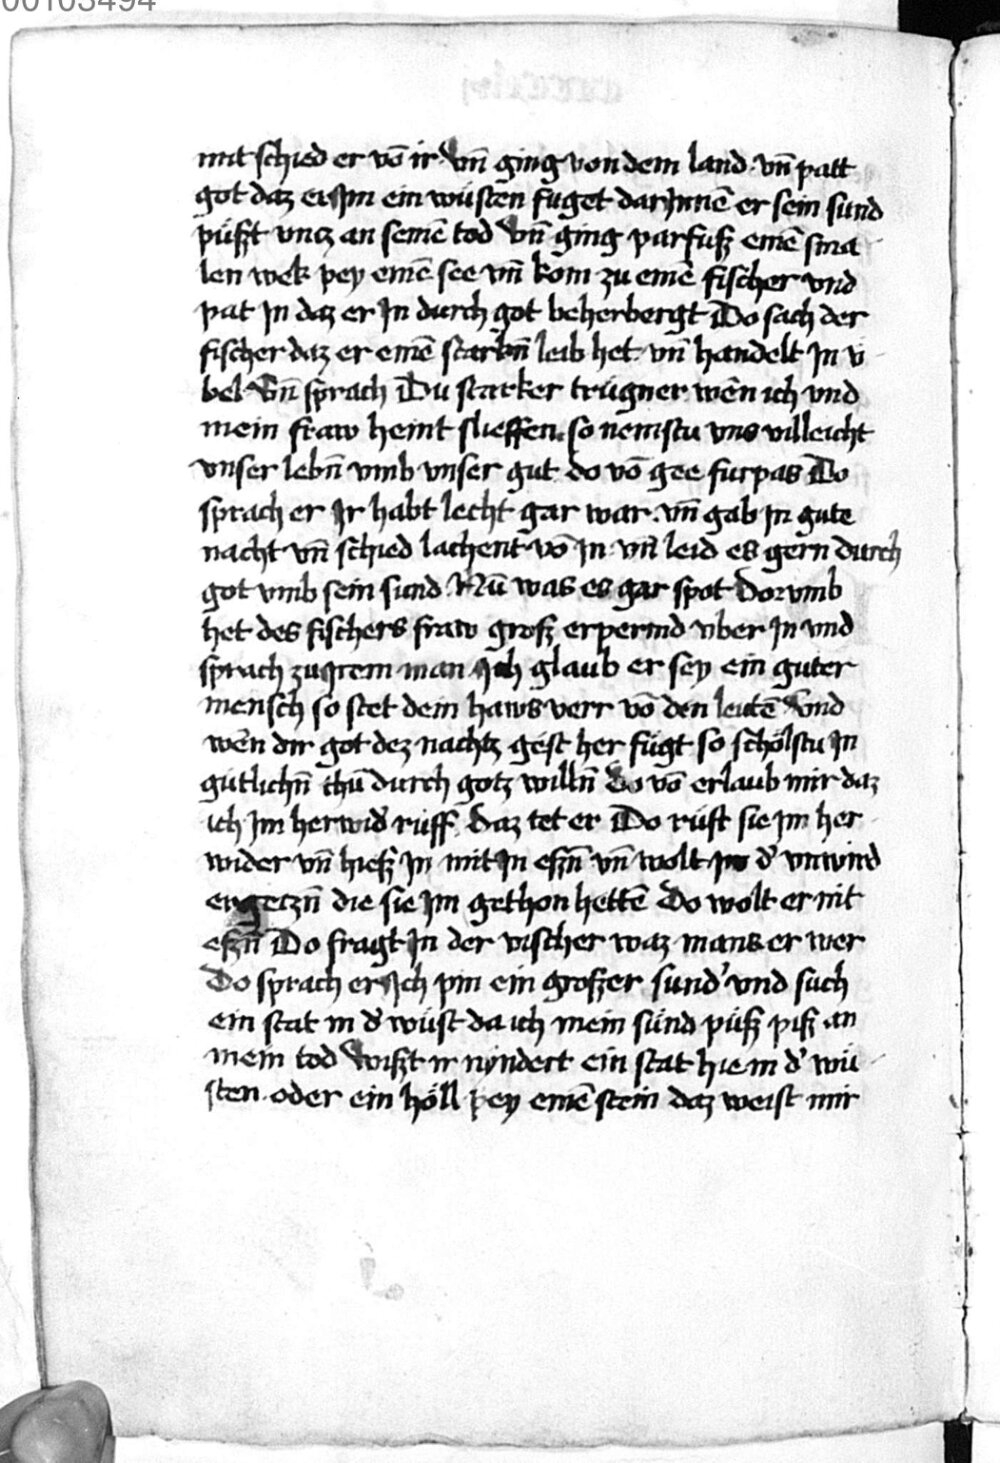 00103494
mit schied er vō ir Vn̄ ging von dem land. vn̄ patt
got daz er Jm ein wüsten fuget darJnnē er sein sund
püßt vncz an seinē tod Vn̄ ging parfuß einē sma
len wek pey einē see vn̄ kom zu einē fischer vnd
pat Jn daz er Jn durch got beherbergt Do sach der
fischer daz er einē starkn̄ leib het. vn̄ handelt Jn v
bel Vn̄ sprach Du starker trügner wēn ich vnd
mein fraw heint slieffen. so nemstu vns villeicht
vnser lebn̄ vmb vnser gut. do vō gee furpas Do
sprach er Jr habt lecht gar war. vn̄ gab Jn gute
nacht vn̄ schied lachent vō Jn. vn̄ leid es gern durch
got vmb sein sund. Nū was es gar spot Dor vmb
het des fischers fraw groß erpermd vber Jn vnd
sprach zu Jrem man Jch glaub er sey ein guter
mensch so stet dein haws verr vō den leutē Vnd
wēn dir got dez nachtz gest her fügt so schölstu Jn
gütlichn̄ thū durch gotz willn̄ do vō erlaub mir daz
ich Jm herwid' rüff. Daz tet er Do rüft sie Jm her
wider vn̄ hieß Jn mit Jn eßn̄ vn̄ wolt Jm d' vnwird
ergeczn̄ die sie Jm gethon hettē Do wolt er nit
eßn̄ Do fragt Jn der vischer waz mans er wer
Do sprach er Jch pin ein großer sund' vnd such
ein stat in d' wüst da ich mein sünd püß piß an
mein tod Wißt ir nyndert ein stat hie in d' wü
sten. oder ein höll pey einē stein daz weist mir